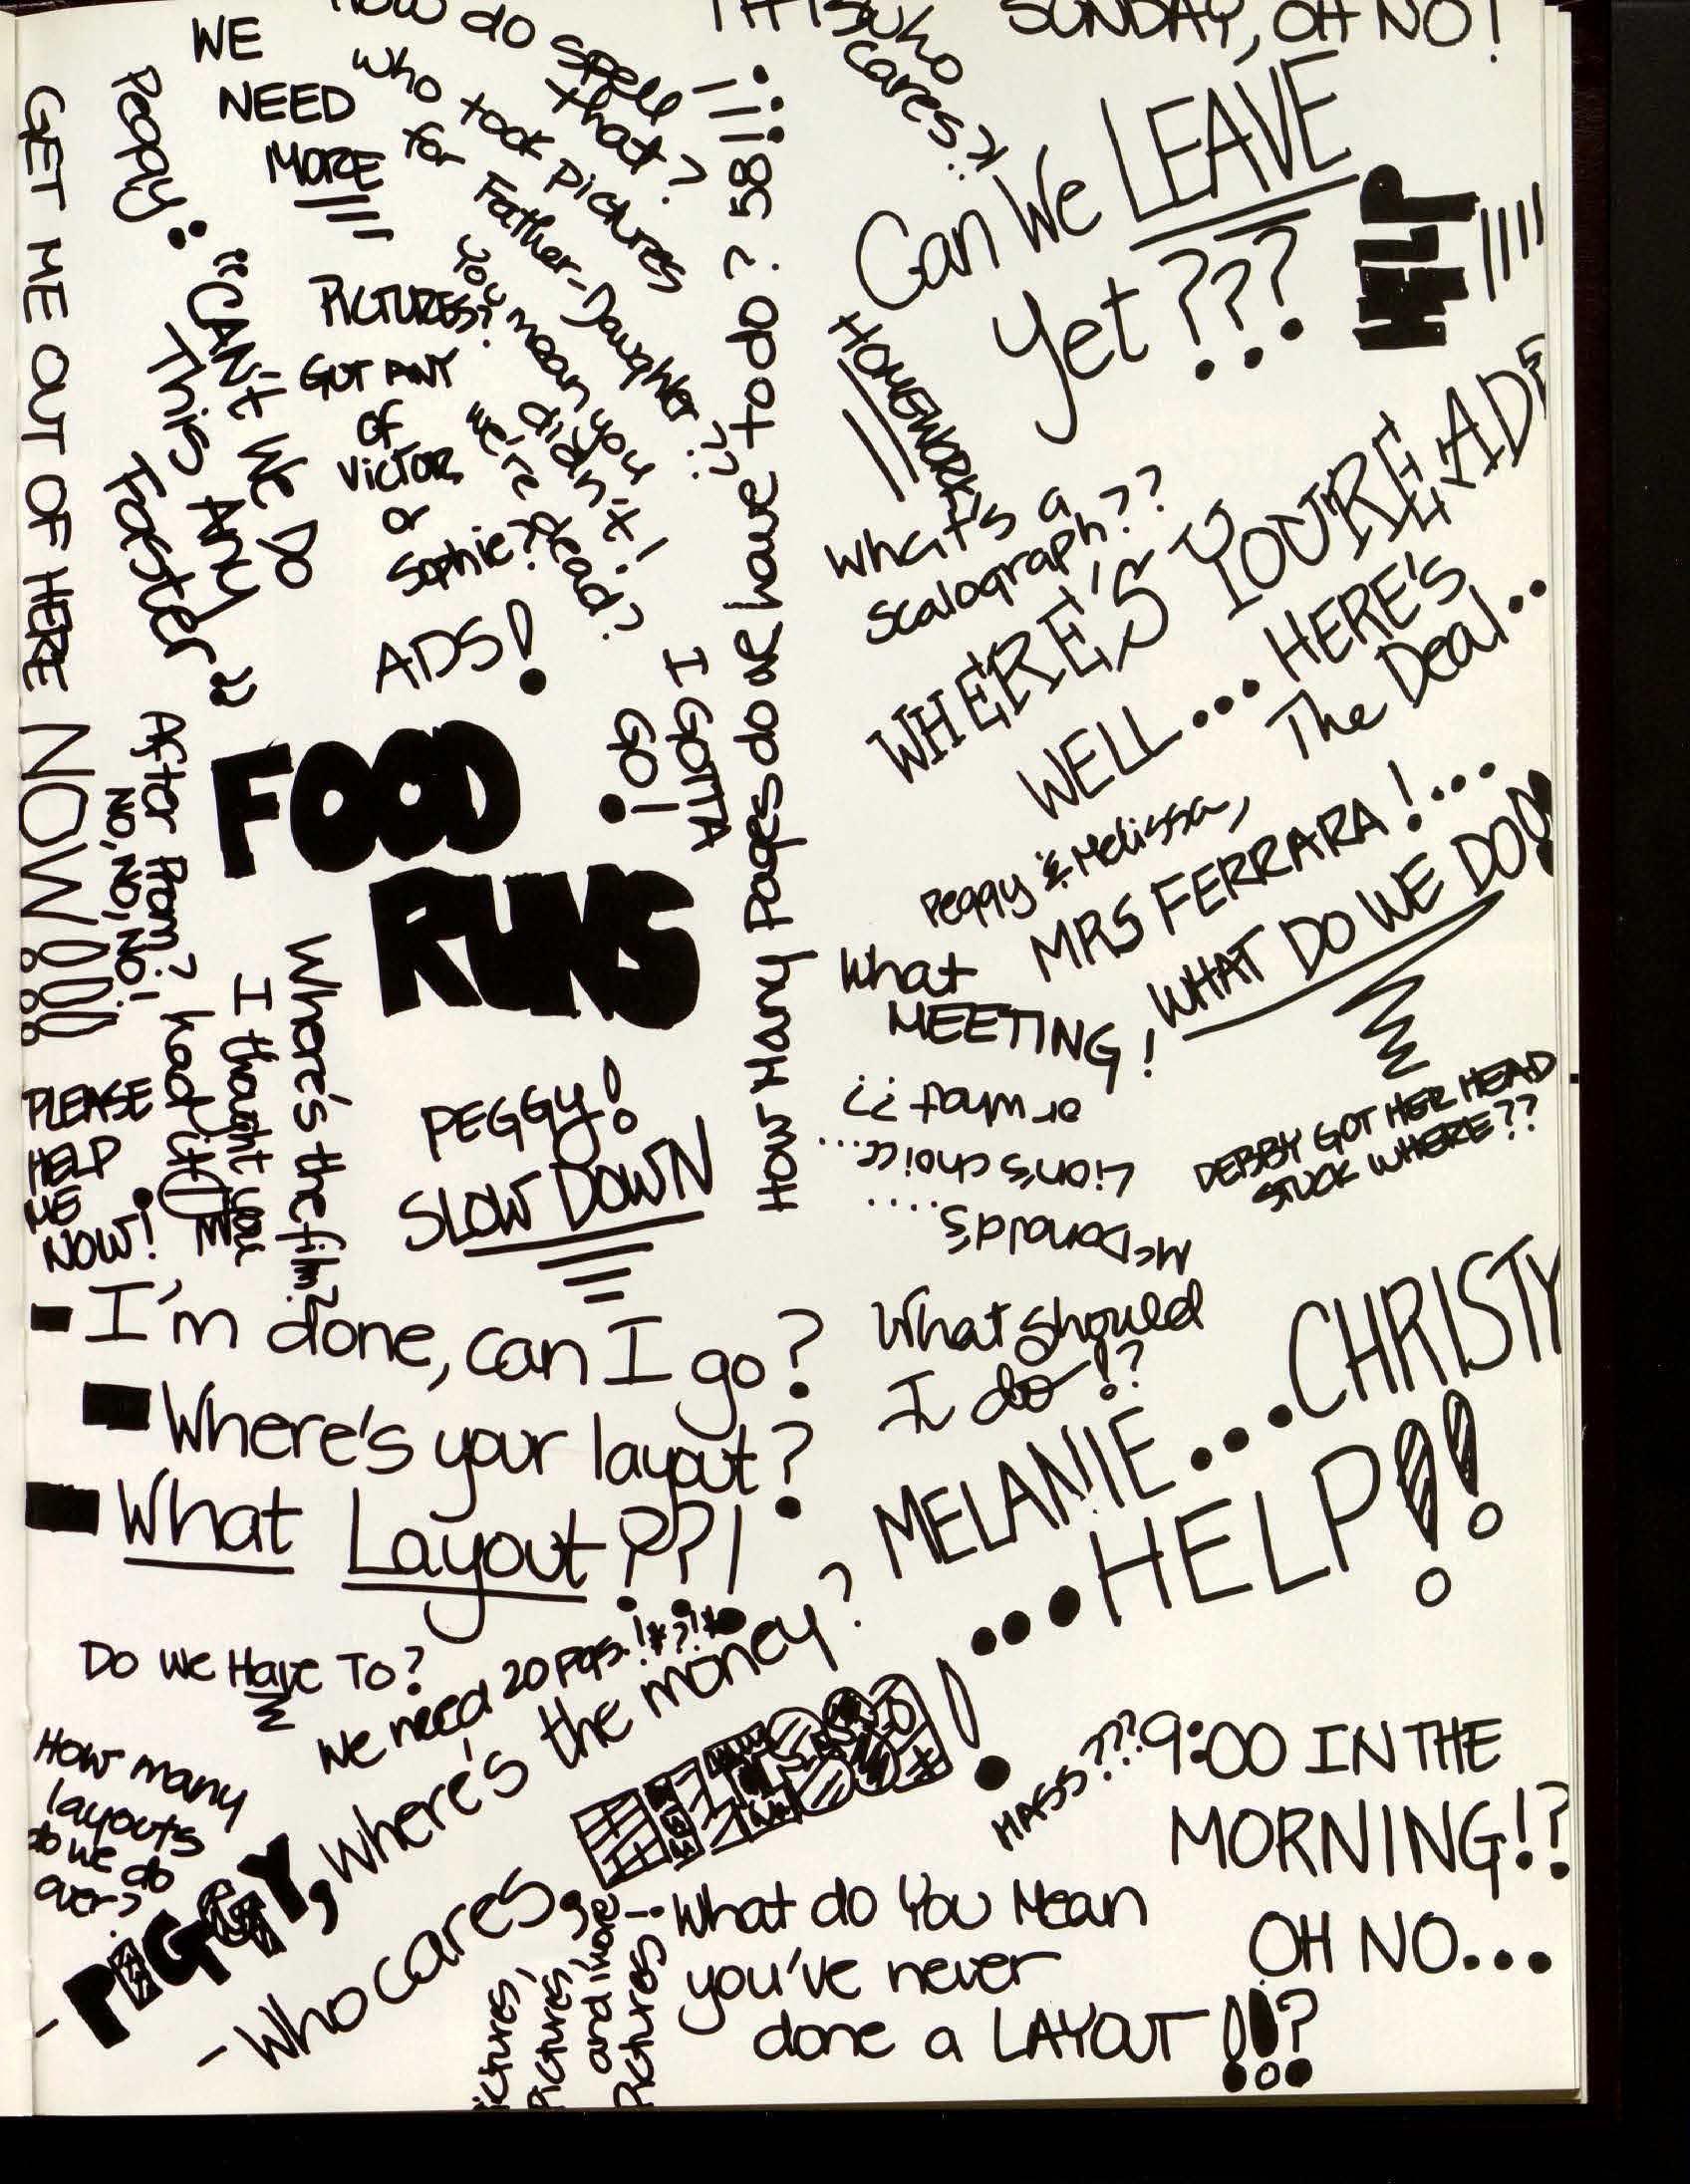 How do spell
that?
WE
NEED
MORE
who took pictures
for Father-Daughter??
who
cares?!
SUNDAY, OH NO!
GET ME OUT OF HERE NOW!!!!
Peggy: "CAN't We Do
This Any
Faster"
PICTURES?
GOT ANY
of
Victor
or
Sophie?
You mean you
didn't!
we're dead?
ADS!
I GOTTA
GO!
How Many Pages do we have to do? 58!!!!
Can We LEAVE
Yet???
HELP
HOMEWORK!
What's a
Scalograph??
WHERE'S YOURE AD?
WELL... HERE'S
The Deal..
Peggy & Melissa,
MRS FERRARA!...
WHAT DO WE DO?
FOOD
RUNS
After Prom?
NO, NO, NO!
I had it!
I thought you
Where's the film?
PLEASE
HELP
ME
NOW!
PEGGY!
SLOW DOWN
What
MEETING!
McDonald's....
Lion's choice....
or what??
DEBBY GOT HER HEAD
STUCK WHERE??
- I'm done, can I go?
- Where's your layout?
- What Layout??!
What should
I do!?
MELANIE....CHRISTY
...HELP!!
Do We Have To?
We need 20 pgs.!*?!*
How many
layouts
do we do
over?
- PIGGY, where's the money?
- Who cares.
Pictures,
Pictures,
and more
Pictures!
MASS???
9:00 IN THE
MORNING!?
OH NO...
What do You Mean
you've never
done a LAYOUT!!?